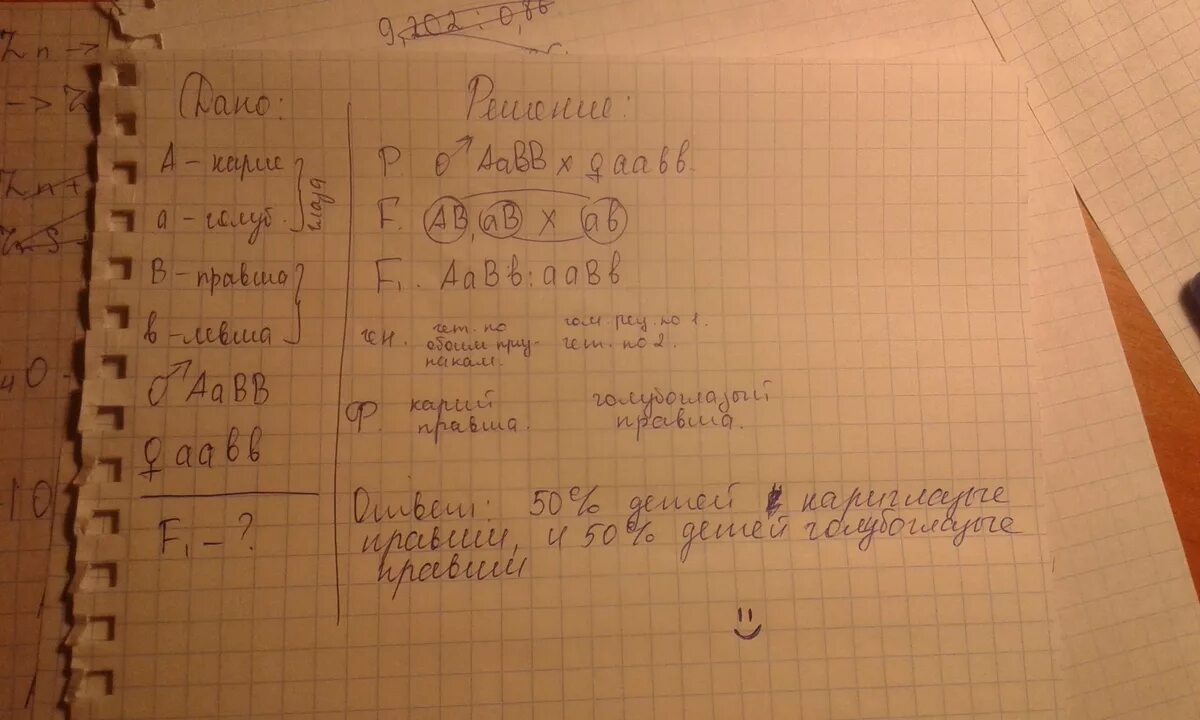 9,202 : 0,86
Zn →
→ Z
Zn +
40
10
Дано:
А - карие
а - голуб.
глаза
В - правша
в - левша
♂ АаВВ
♀ аавв
F₁ - ?
Решение:
P. ♂ АаВВ х ♀ аавв.
F. АВ, аВ х ав
F₁. АаВв : ааВв
ген. гет. по обоим при-
знакам.
гом. рец. по 1.
гет. по 2.
Ф. карий
правша.
голубоглазый
правша.
Ответ: 50% детей кариглазые
правши, и 50% детей голубоглазые
правши